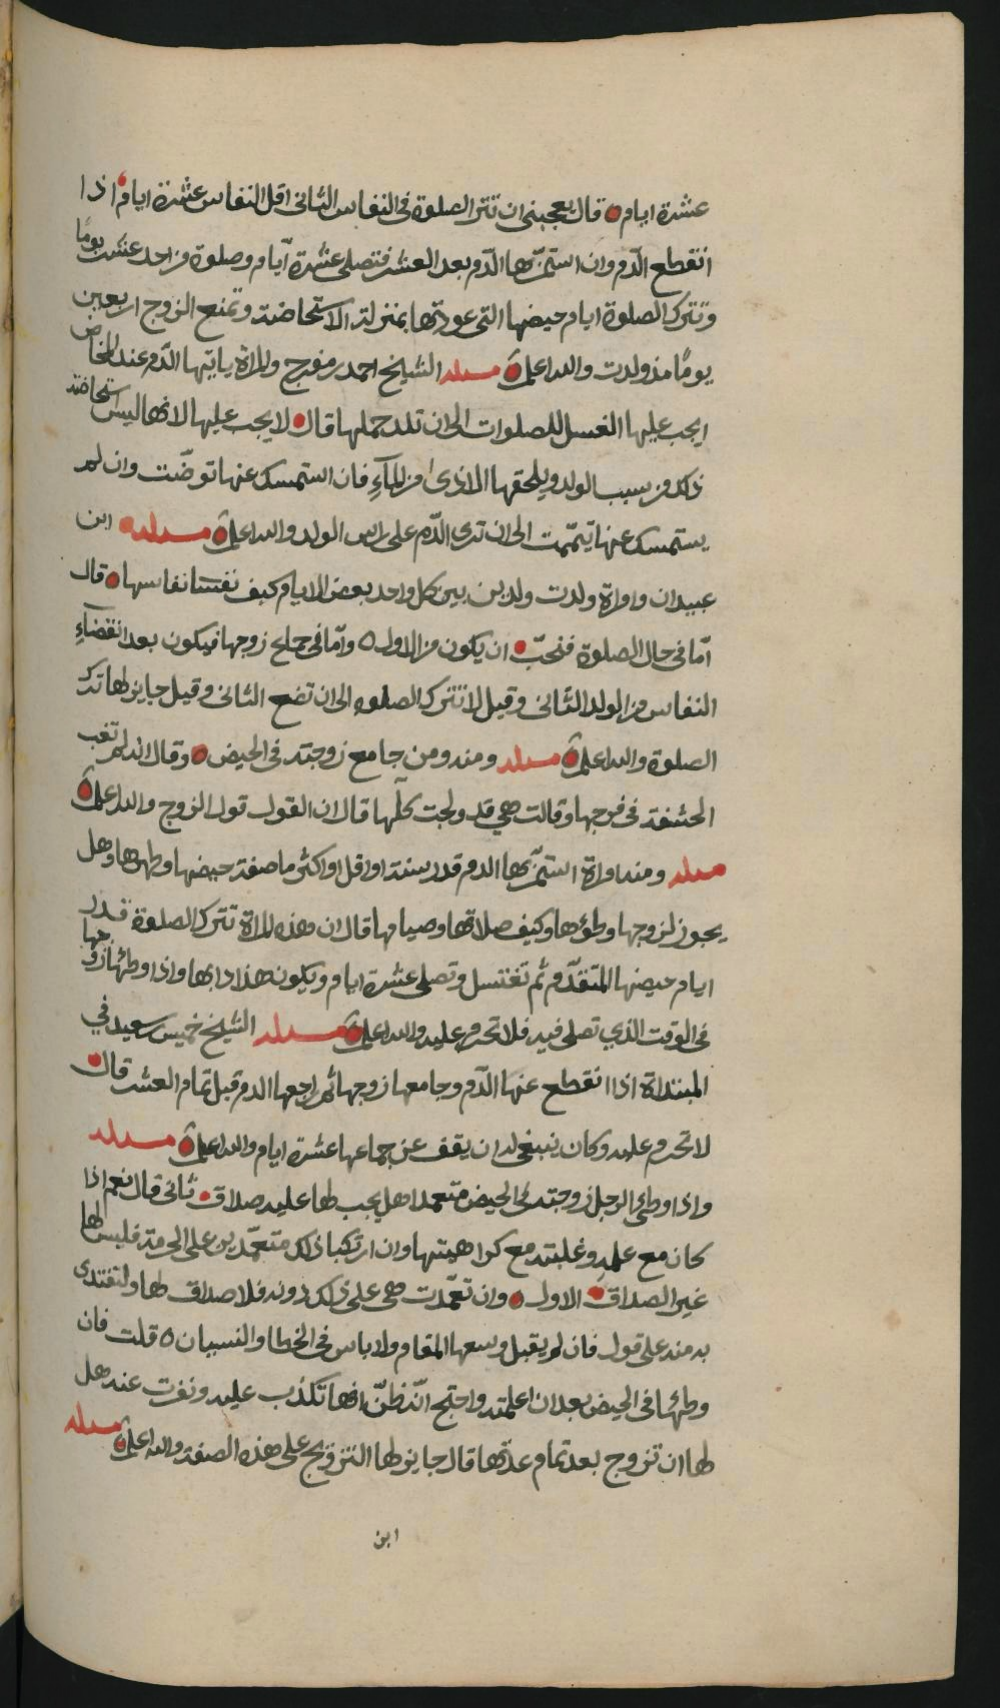 عشرة ايام قال يعجبني ان تترك الصلوة في النفاس الثاني اقل النفاس عشرة ايام اذا
انقطع الدّم وان استمرّ بها الدّم بعد العشر فتصلي عشرة آيام وصلوة من احد عشر يومًا
وتترك الصلوة ايام حيضها التي عودتها بمنزلة الاستحاضة وتمنع الزوج اربعين
يومًا مذ ولدت والله اعلم مسئلة الشيخ احمد بن مفرج والمراة ياتيها الدّم عند المخاض
ايجب عليها الغسل للصلوات الى ان تلد حملها قال لا يجب عليها لانها ليس استحاضة
ذلك من سبب الولد ويلحقها الاذى من المآءِ فان استمسك عنها توضّت وان لم
يستمسك عنها تيمّمت الى ان ترى الدّم على راس الولد والله اعلم مسئلة ابن
عبيدان وامراة ولدت ولدين بين كل واحد بعض الايام كيف نفسّا نفاسها قال
امّا في حال الصلوة فنحبّ ان يكون من الاول وامّا في جماع زوجها فيكون بعد انقضآءِ
النفاس من الولد الثاني وقيل لا تترك الصلوه الى ان تضع الثاني وقيل جايز لها ترك
الصلوة والله اعلم مسئلة ومنه ومن جامع زوجته في الحيض وقال انه لم تغب
الحشفة في فرجها وقالت هي قد ولجت كلّها قال ان القول قول الزوج والله اعلم
مسئلة ومنه امراة استمرّ بها الدم قدر سنة او اقل او اكثر ما صفة حيضها وطهرها وهل
يجوز لزوجها وطؤها وكيف صلاتها وصيامها قال ان هذه المراة تترك الصلوة قدر
ايام حيضها المتقدّم ثم تغتسل وتصلي عشرة ايام ويكون هذا دابها واذا وطئها زوجها
في الوقت الذي تصلي فيه فلا تحرم عليه والله اعلم مسئلة الشيخ خميس بن سعيد في
المبتداة اذا انقطع عنها الدّم وجامعها زوجها ثم راجعها الدم قبل تمام العشر قال
لا تحرم عليه وكان ينبغي له ان يقف عن جماعها عشرة ايام والله اعلم مسئلة
واذا وطي الرجل زوجته في الحيض متعمدا هل يجب لها عليه صداق ثاني قال نعم اذا
كان مع علمهِ وغلبته مع كراهيتها وان ارتكبا ذلك متعمّدين على الحرمة فليس لها
غير الصداق الاول وان تعمّدت هي على ذلك دونه فلا صداق لها ولتفتدى
به منه على قول فان لم يقبل وسعها المقام ولا باس في الخطا والنسيان قلت فان
وطئها في الحيض بعد ان اعلمته واحتج انّه ظنّ انها تكذب عليه ونفرت عنه هل
لها ان تزوج بعد تمام عدّتها قال جايز لها التزويج على هذه الصفة والله اعلم مسئلة
ابن